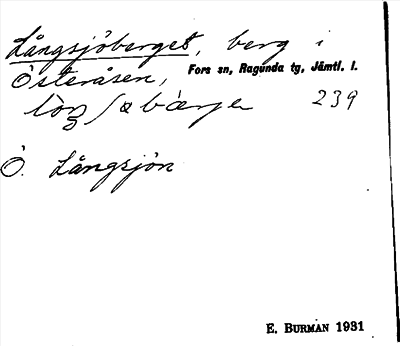 Långsjöberget, berg i
Österåsen, Fors sn, Ragunda tg, Jämtl. l.
239
Ö. Långsjön
E. BURMAN 1931